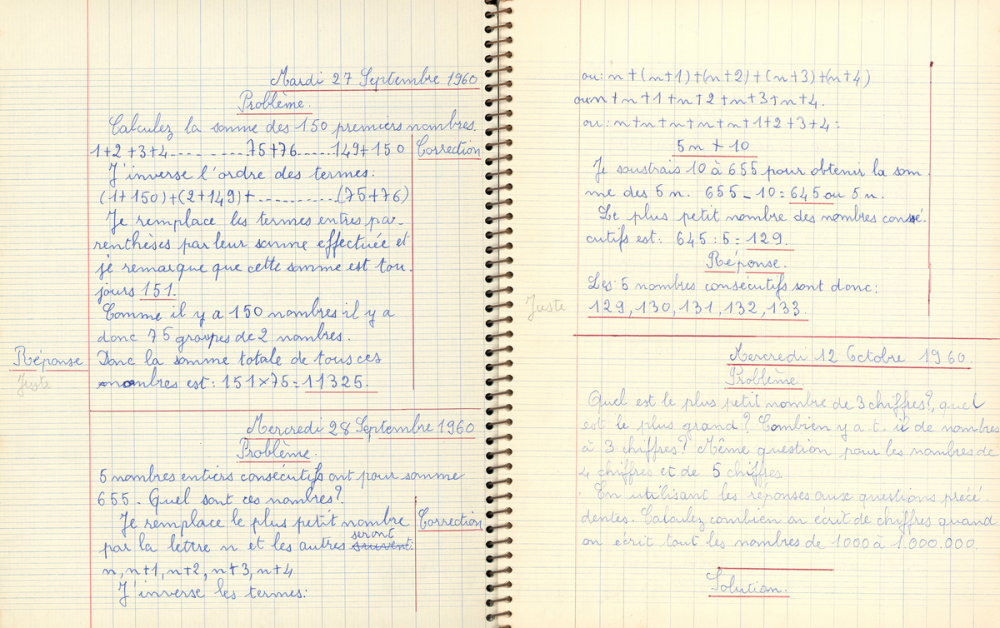 Mardi 27 Septembre 1960
Problème.
Calculez la somme des 150 premiers nombres.
1+2+3+4..........75+76......149+150 Correction
J'inverse l'ordre des termes:
(1+150)+(2+149)+............(75+76)
Je remplace les termes entres pa-
renthèses par leur somme effectuée et
je remarque que cette somme est tou-
jours 151.
Comme il y a 150 nombres il y a
donc 75 groupes de 2 nombres.
Réponse Donc la somme totale de tous ces
Juste nombres est: 151×75=11325.
Mercredi 28 Septembre 1960
Problème.
5 nombres entiers consécutifs ont pour somme
655. Quel sont ces nombres?
Je remplace le plus petit nombre Correction
par la lettre n et les autres seront
n, n+1, n+2, n+3, n+4
J'inverse les termes:
ou: n+(n+1)+(n+2)+(n+3)+(n+4)
ou n+n+1+n+2+n+3+n+4.
ou: n+n+n+n+n+1+2+3+4:
5n+10
Je soustrais 10 à 655 pour obtenir la som
me des 5 n. 655-10=645 ou 5n.
Le plus petit nombre des nombres consé-
cutifs est: 645:5=129.
Réponse.
Les 5 nombres consécutifs sont donc:
Juste 129, 130, 131, 132, 133.
Mercredi 12 Octobre 1960.
Problème
Quel est le plus petit nombre de 3 chiffres?, quel
est le plus grand? Combien y a-t-il de nombres
à 3 chiffres? Même question pour les nombres de
4 chiffres et de 5 chiffres.
En utilisant les réponses aux questions précé-
dentes. Calculez combien on écrit de chiffres quand
on écrit tout les nombres de 1000 à 1.000.000.
Solution.